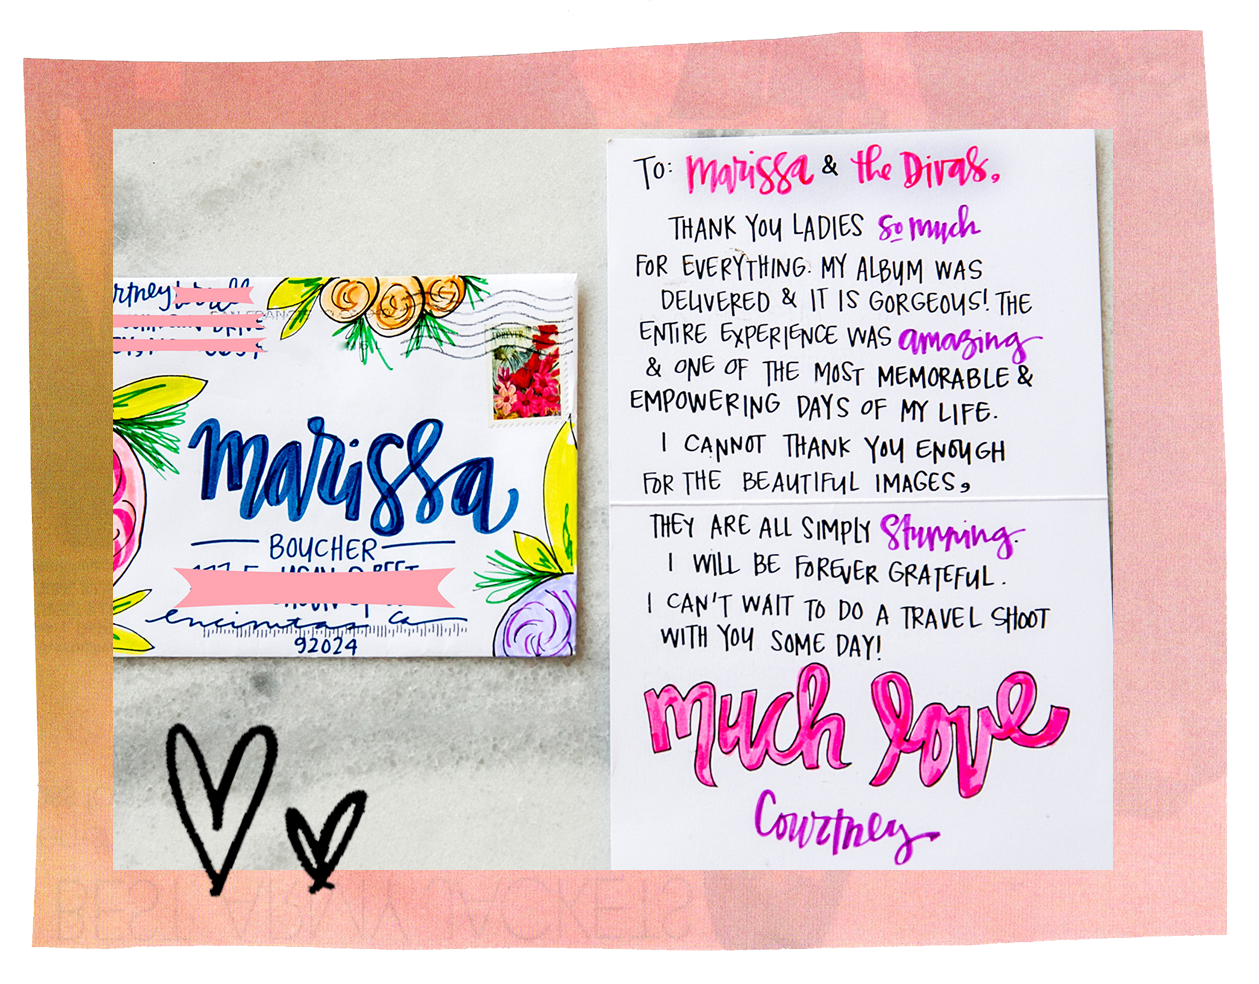 To: Marissa & the Divas,
THANK YOU LADIES so much
FOR EVERYTHING. MY ALBUM WAS
DELIVERED & IT IS GORGEOUS! THE
ENTIRE EXPERIENCE WAS amazing
& ONE OF THE MOST MEMORABLE &
EMPOWERING DAYS OF MY LIFE.
I CANNOT THANK YOU ENOUGH
FOR THE BEAUTIFUL IMAGES,
THEY ARE ALL SIMPLY Stunning.
I WILL BE FOREVER GRATEFUL.
I CAN'T WAIT TO DO A TRAVEL SHOOT
WITH YOU SOME DAY!
much love
Courtney
marissa
BOUCHER
encinitas Ca
92024
FOREVER
BEST ARMY JACKETS